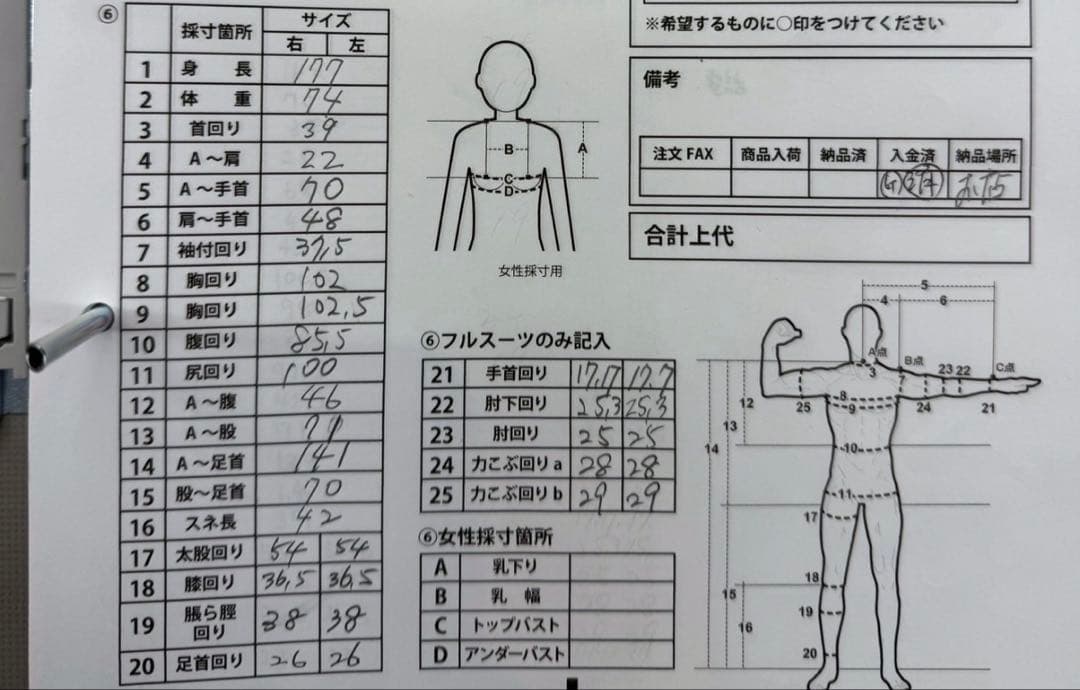 ⑥
採寸箇所 サイズ
右 左
1 身長 177
2 体重 74
3 首回り 39
4 A～肩 22
5 A～手首 70
6 肩～手首 48
7 袖付回り 37,5
8 胸回り 102
9 胸回り 102,5
10 腹回り 85,5
11 尻回り 100
12 A～腹 46
13 A～股
14 A～足首 141
15 股～足首 70
16 スネ長 42
17 太股回り 54 54
18 膝回り 36,5 36,5
19 脹ら脛回り 38 38
20 足首回り 26 26
B
A
C
D
女性採寸用
※希望するものに○印をつけてください
備考
注文FAX 商品入荷 納品済 入金済 納品場所
合計上代
⑥フルスーツのみ記入
21 手首回り 17,17 17,7
22 肘下回り 25,3 25,3
23 肘回り 25 25
24 力こぶ回りa 28 28
25 力こぶ回りb 29 29
⑥女性採寸箇所
A 乳下り
B 乳幅
C トップバスト
D アンダーバスト
5
4 6
A点 B点 C点
3 7 23 22
12 25 8 9 24 21
13
14 10
11
17
18
15
19 16
20